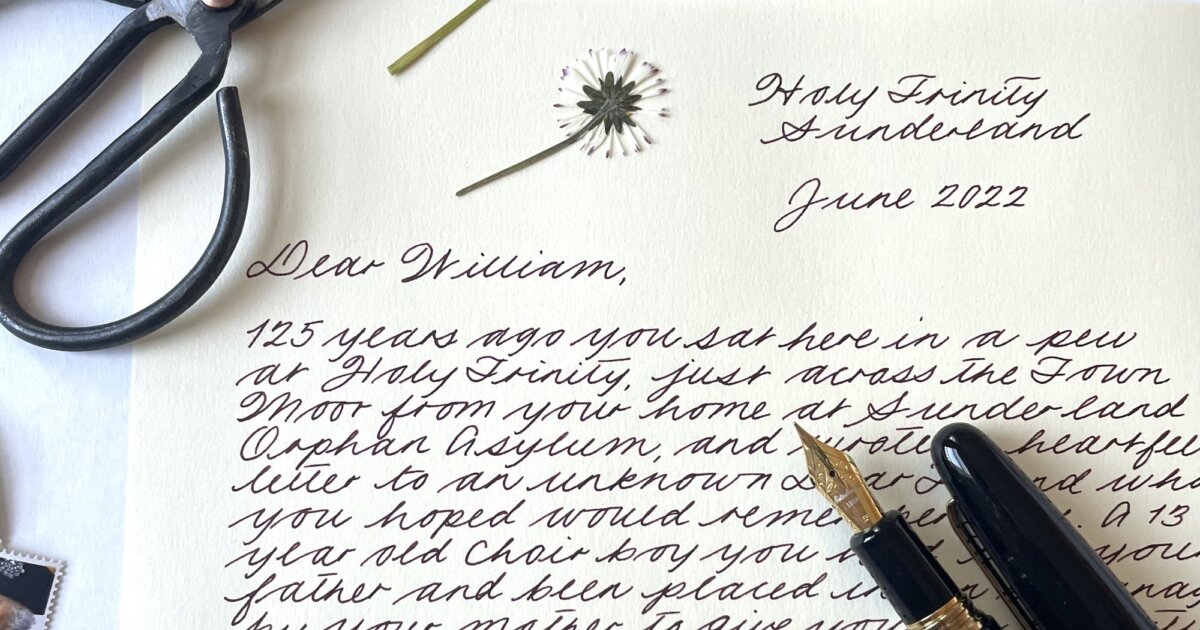 Holy Trinity
Sunderland
June 2022
Dear William,
125 years ago you sat here in a pew
at Holy Trinity, just across the Town
Moor from your home at Sunderland
Orphan Asylum, and wrote heartfel
letter to an unknown
you hoped would A 13
year old Choir boy you
father and been placed
by your mother to give you